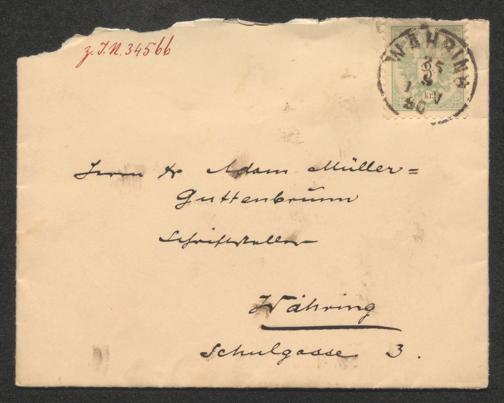 z. I. N. 34566
WÄHRING
25
3
1 V
90
Herrn Dr Adam Müller=
Guttenbrunn
Schriftsteller
Währing
Schulgasse 3.